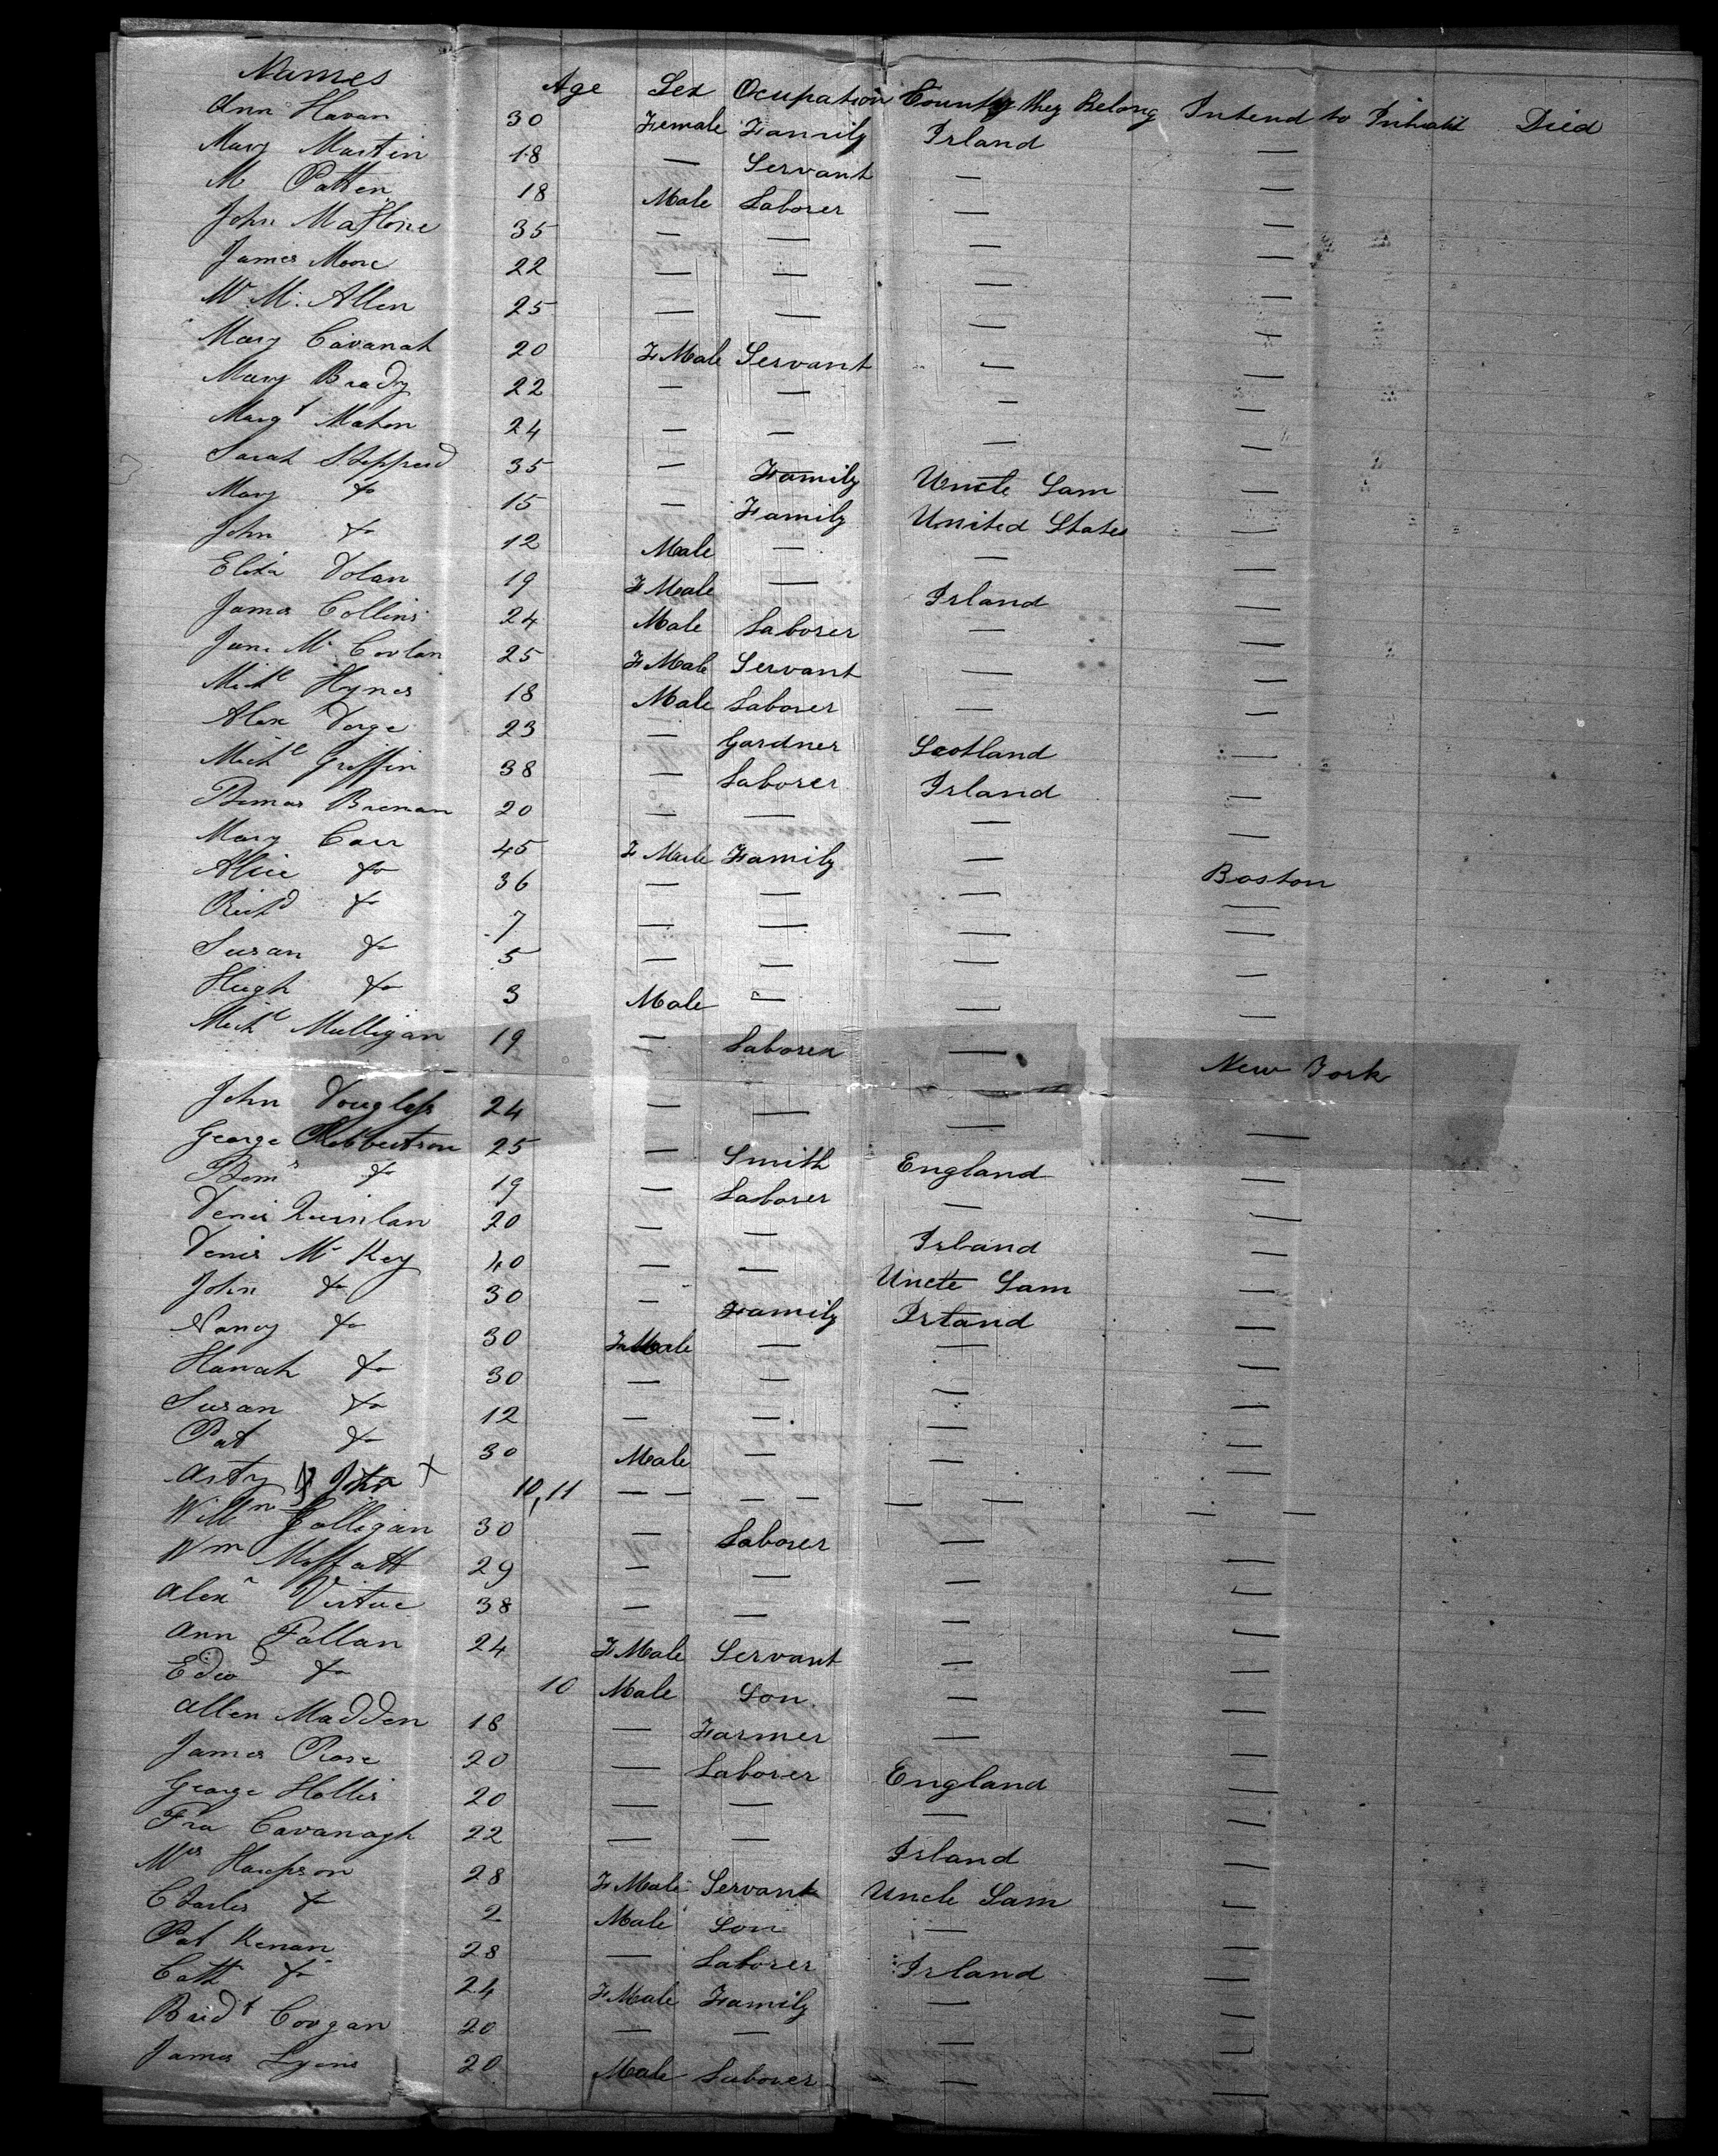 Names Age Sex Ocupation County they Belong Intend to Inhabit Died
Ann Havan 30 Female Family Irland —
Mary Martin 18 — Servant — —
M Patten 18 Male Laborer — —
John Malone 35 — — — —
James Moore 22 — — — —
Wm. Allen 25 — — — —
Mary Cavanah 20 F Male Servant — —
Mary Brady 22 — — — —
Margt Mahon 24 — — — —
Sarah Shepperd 35 — Family Uncle Sam —
Mary do 15 — Family United States —
John do 12 Male — — —
Eliza Dolan 19 F Male — Irland —
James Collins 24 Male Laborer — —
Jane Mc 25 F Male Servant — —
Michl Hynes 18 Male Laborer — —
Alex 23 — Gardner Scotland —
Michl Griffin 38 — Laborer Irland —
Thomas Brenan 20 — — — —
Mary Carr 45 F Male Family — Boston
Alice do 36 — — — —
Richd do 7 — — — —
Susan do 5 — — — —
Hugh do 3 Male — — —
Michl Mulligan 19 — Laborer — New York
John Douglass 24 — — — —
George Robbertson 25 — Smith England —
Thoms do 19 — Laborer — —
Denis Quinlan 20 — — Irland —
Denis Mc Key 40 — — Uncle Sam —
John do 30 — Family Irland —
Nancy do 30 F Male — — —
Hanah do 30 — — — —
Susan do 12 — — — —
Pat do 30 Male — — —
Arty & John + 10, 11 — — — — — — — —
Willm Golligan 30 — Laborer — —
Wm Moffatt 29 — — — —
Alexr Virtue 38 — — — —
Ann Fallan 24 F Male Servant — —
Edwd do 10 Male Son — —
Allen Madden 18 — Farmer — —
James Rose 20 — Laborer England —
George Hollis 20 — — — —
Fra Cavanagh 22 — — Irland —
Mrs Hampson 28 F Male Servant Uncle Sam —
Charles do 2 Male Son — —
Pat Kenan 28 — Laborer Irland —
Cath do 24 F Male Family — —
Bridt Coogan 20 — — — —
James Lyons 20 Male Laborer — —